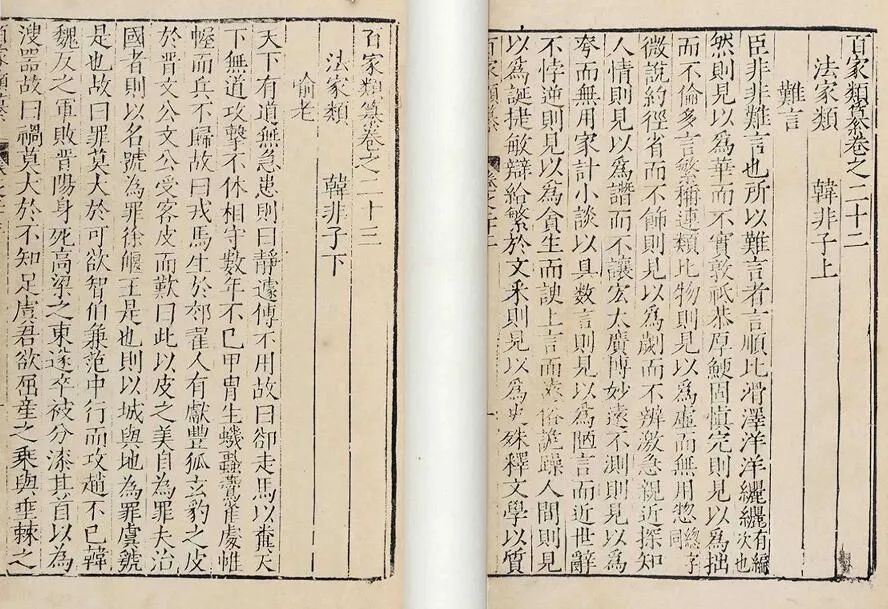 百家類纂卷之二十二
法家類 韓非子上
難言
臣非非難言也所以難言者言順比滑澤洋洋纚纚有編次也
然則見以爲華而不實敦祇恭厚鯁固慎完則見以爲拙
而不倫多言繁稱連類比物則見以爲虛而無用惣總字同
微說約徑省而不飾則見以爲劌而不辨激急親近探知
人情則見以爲譖而不讓宏大廣博妙遠不測則見以爲
夸而無用家計小談以具數言則見以爲陋言而近世辭
不悖逆則見以爲貪生而諛上言而遠俗詭躁人間則見
以爲誕捷敏辯給繁於文采則見以爲史殊釋文學以質
百家類纂卷之二十三
法家類 韓非子下
喻老
天下有道無急患則曰靜遽傳不用故曰卻走馬以糞天
下無道攻擊不休相守數年不已甲冑生蟣蝨鷰雀處帷
幄而兵不歸故曰戎馬生於郊翟人有獻豐狐玄豹之皮
於晉文公文公受客皮而歎曰此以皮之美自為罪夫治
國者則以名號為罪徐偃王是也則以城與地為罪虞虢
是也故曰罪莫大於可欲智伯兼范中行而攻趙不已韓
魏反之軍敗晉陽身死高梁之東遂卒被分漆其首以為
溲器故曰禍莫大於不知足虞君欲屈產之乘與垂棘之